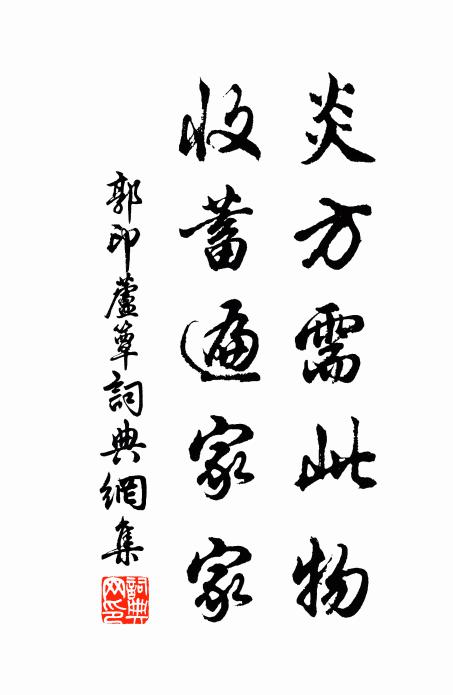 炎方需此物
收蓄遍家家
郭印蘆簟詞典網集
詞典网印